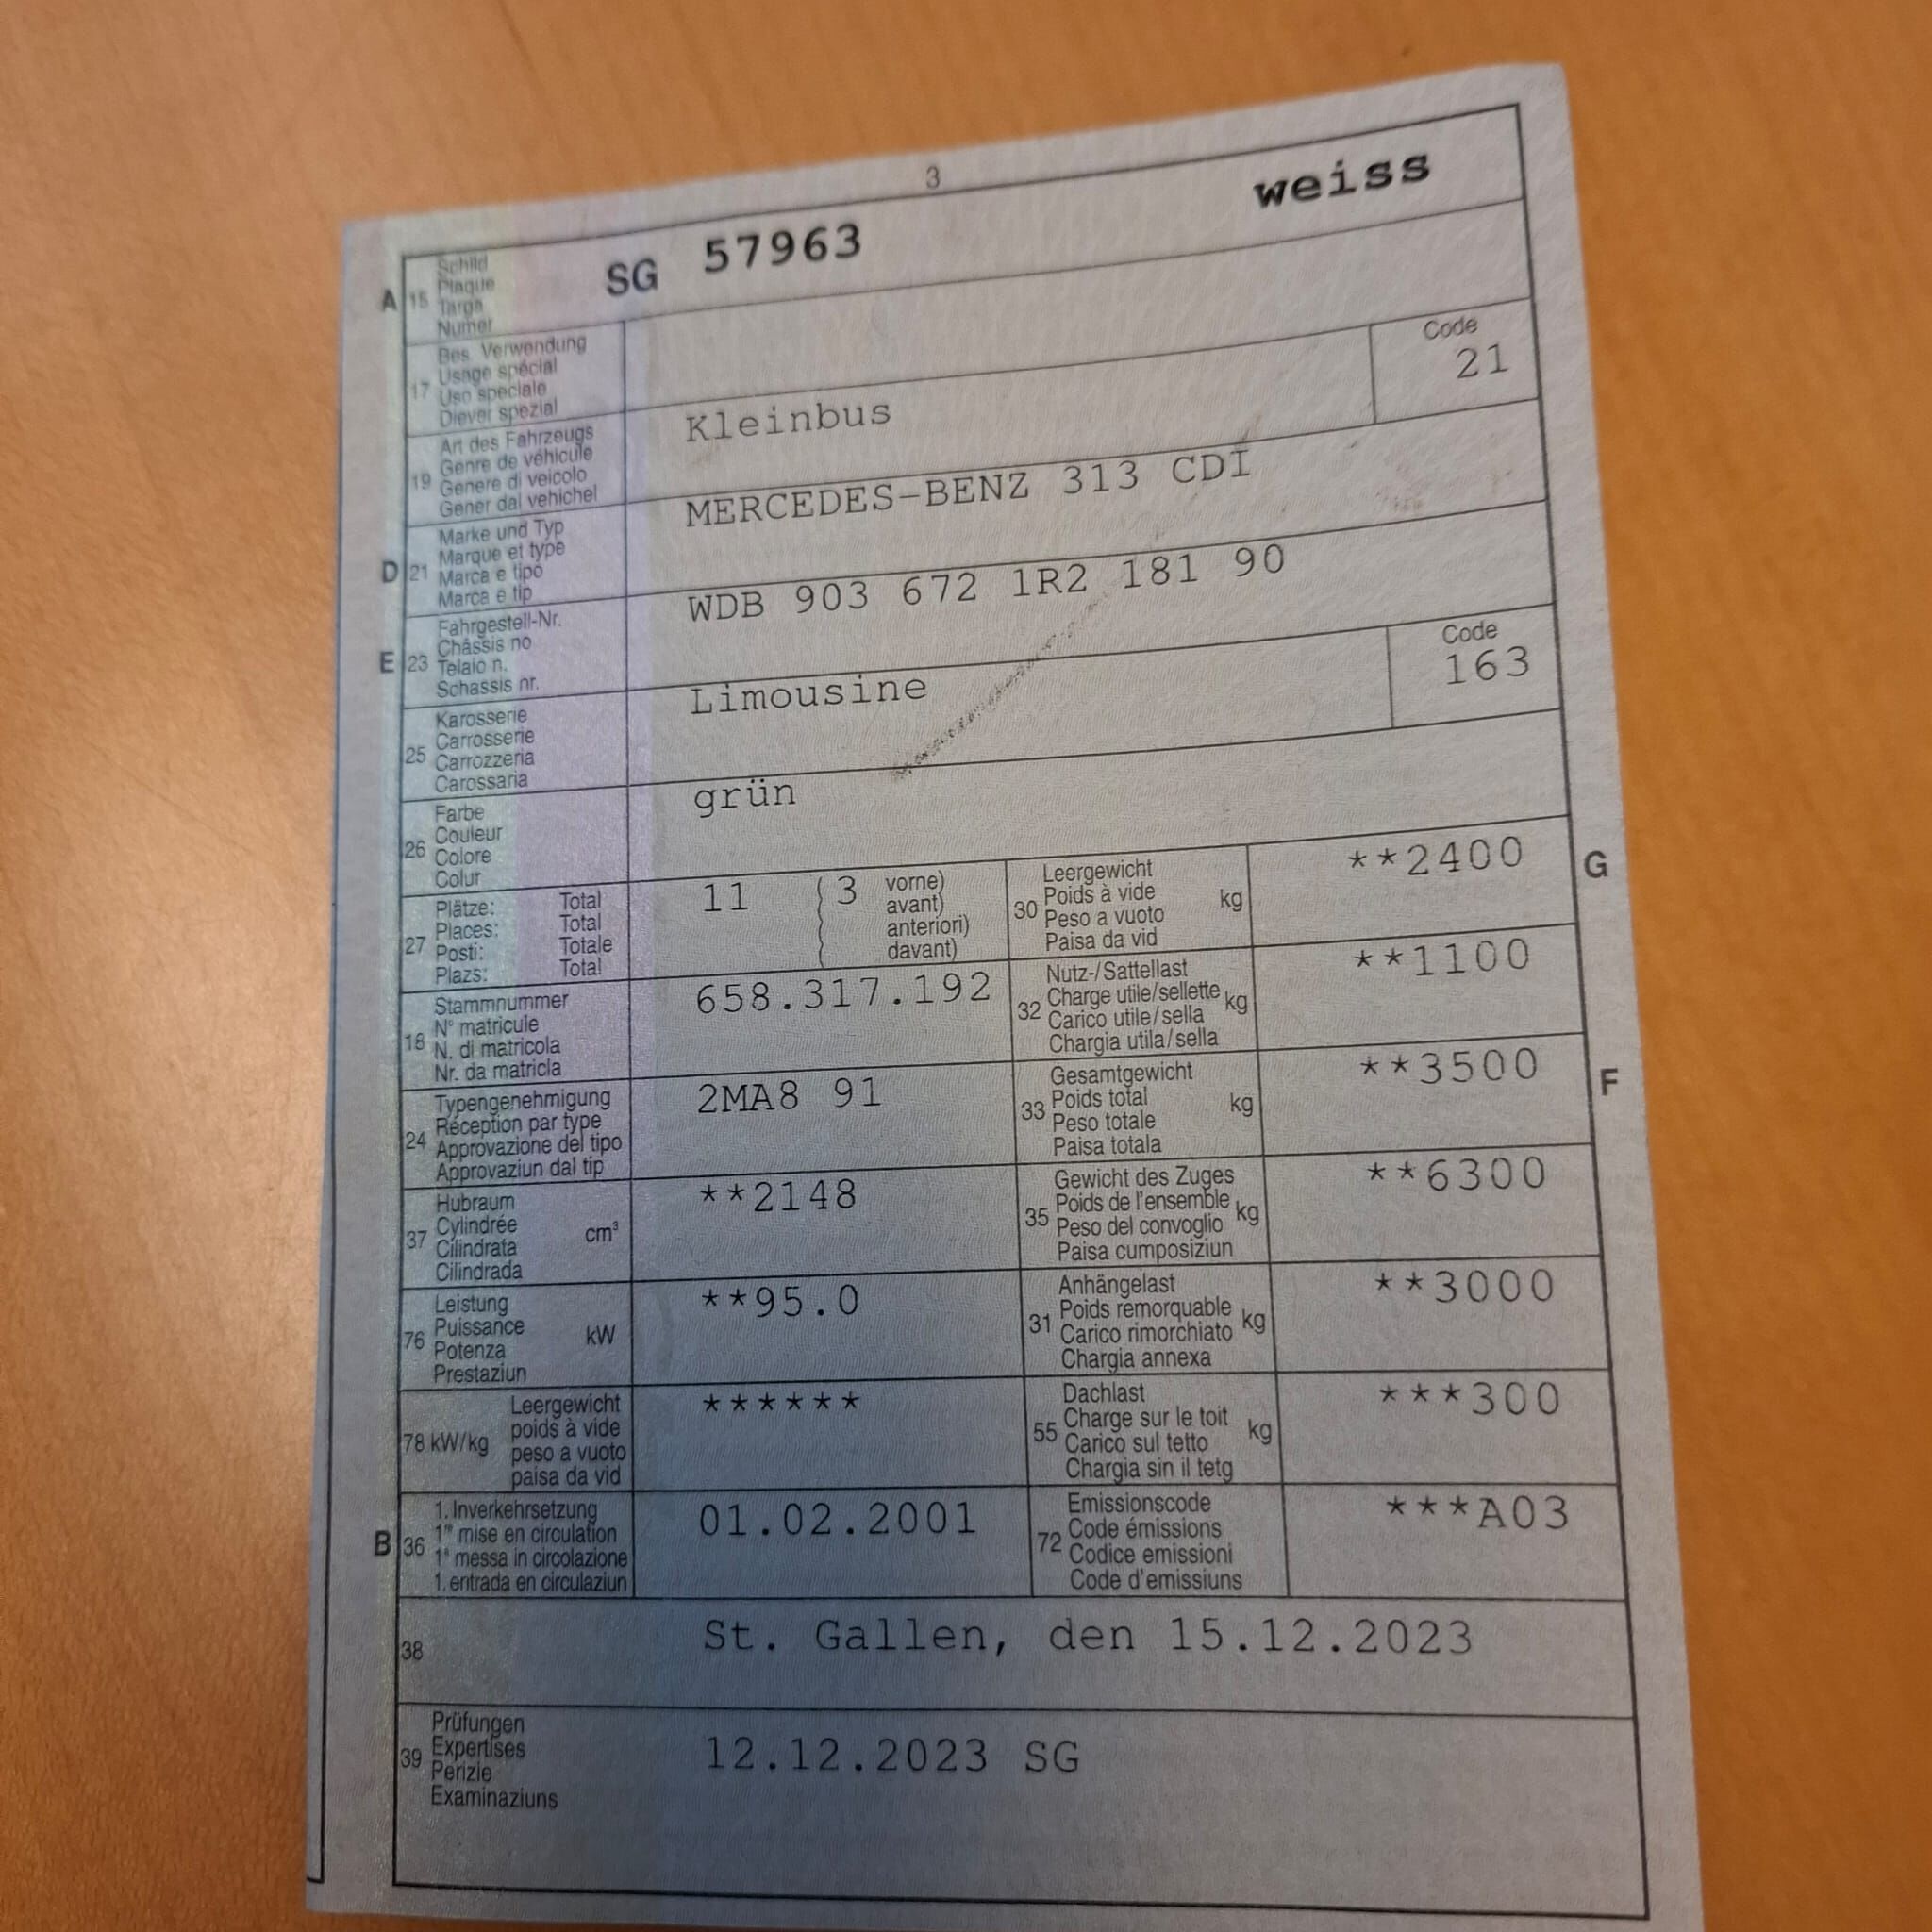 3
A 15 Schild
Plaque
Targa
Numer
SG 57963 weiss
17 Bes. Verwendung
Usage spécial
Uso speciale
Diever spezial
19 Art des Fahrzeugs
Genre de véhicule
Genere di veicolo
Gener dal vehichel
Kleinbus
Code
21
D 21 Marke und Typ
Marque et type
Marca e tipo
Marca e tip
MERCEDES-BENZ 313 CDI
E 23 Fahrgestell-Nr.
Châssis no
Telaio n.
Schassis nr.
WDB 903 672 1R2 181 90
25 Karosserie
Carrosserie
Carrozzeria
Carossaria
Limousine
Code
163
26 Farbe
Couleur
Colore
Colur
grün
27 Plätze: Total
Places: Total
Posti: Totale
Plazs: Total
11 (3 vorne)
avant)
anteriori)
davant)
30 Leergewicht
Poids à vide kg
Peso a vuoto
Paisa da vid
**2400 G
18 Stammnummer
N° matricule
N. di matricola
Nr. da matricla
658.317.192
32 Nutz-/Sattellast
Charge utile/sellette kg
Carico utile/sella
Chargia utila/sella
**1100
24 Typengenehmigung
Réception par type
Approvazione del tipo
Approvaziun dal tip
2MA8 91
33 Gesamtgewicht
Poids total kg
Peso totale
Paisa totala
**3500 F
37 Hubraum
Cylindrée cm³
Cilindrata
Cilindrada
**2148
35 Gewicht des Zuges
Poids de l'ensemble kg
Peso del convoglio
Paisa cumposiziun
**6300
76 Leistung
Puissance kW
Potenza
Prestaziun
**95.0
31 Anhängelast
Poids remorquable kg
Carico rimorchiato
Chargia annexa
**3000
78 kW/kg Leergewicht
poids à vide
peso a vuoto
paisa da vid
******
55 Dachlast
Charge sur le toit kg
Carico sul tetto
Chargia sin il tetg
***300
B 36 1. Inverkehrsetzung
1re mise en circulation
1a messa in circolazione
1. entrada en circulaziun
01.02.2001
72 Emissionscode
Code émissions
Codice emissioni
Code d'emissiuns
***A03
38 St. Gallen, den 15.12.2023
39 Prüfungen
Expertises
Perizie
Examinaziuns
12.12.2023 SG